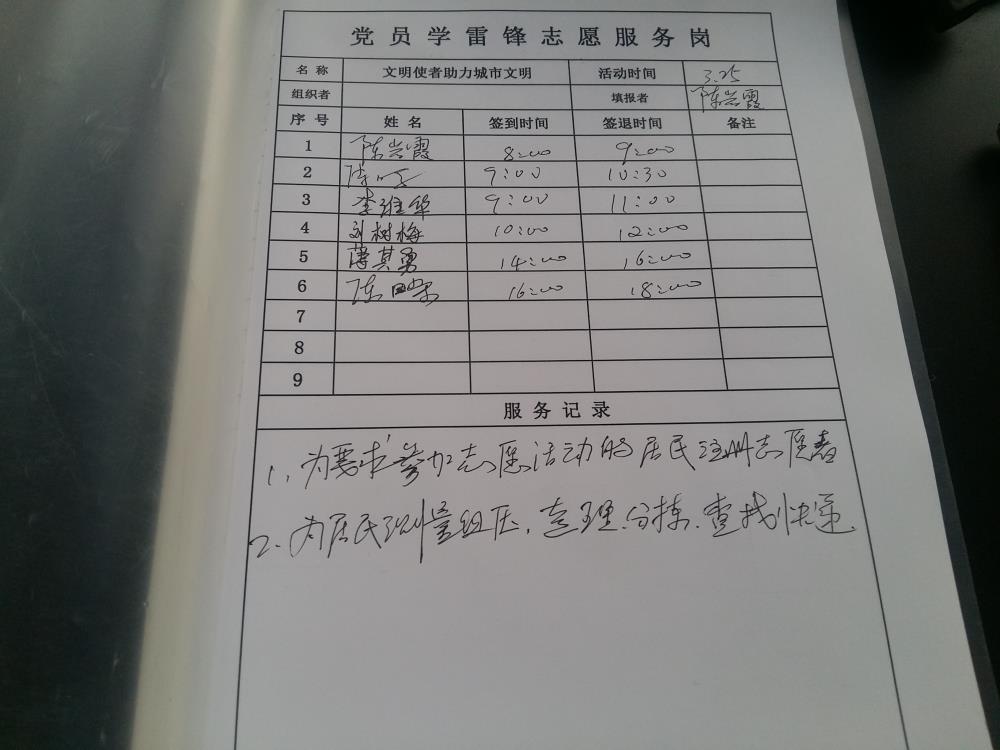 党员学雷锋志愿服务岗
名称 文明使者助力城市文明 活动时间 3.25
组织者 填报者 陈兴霞
序号 姓名 签到时间 签退时间 备注
1 陈兴霞 8:00 9:00
2 陈 9:00 10:30
3 李维华 9:00 11:00
4 刘树梅 10:00 12:00
5 薄其勇 14:00 16:00
6 陈 16:00 18:00
7
8
9
服务记录
1、为要求参加志愿活动的居民注册志愿者
2、为居民测量血压、整理、分拣、查找快递